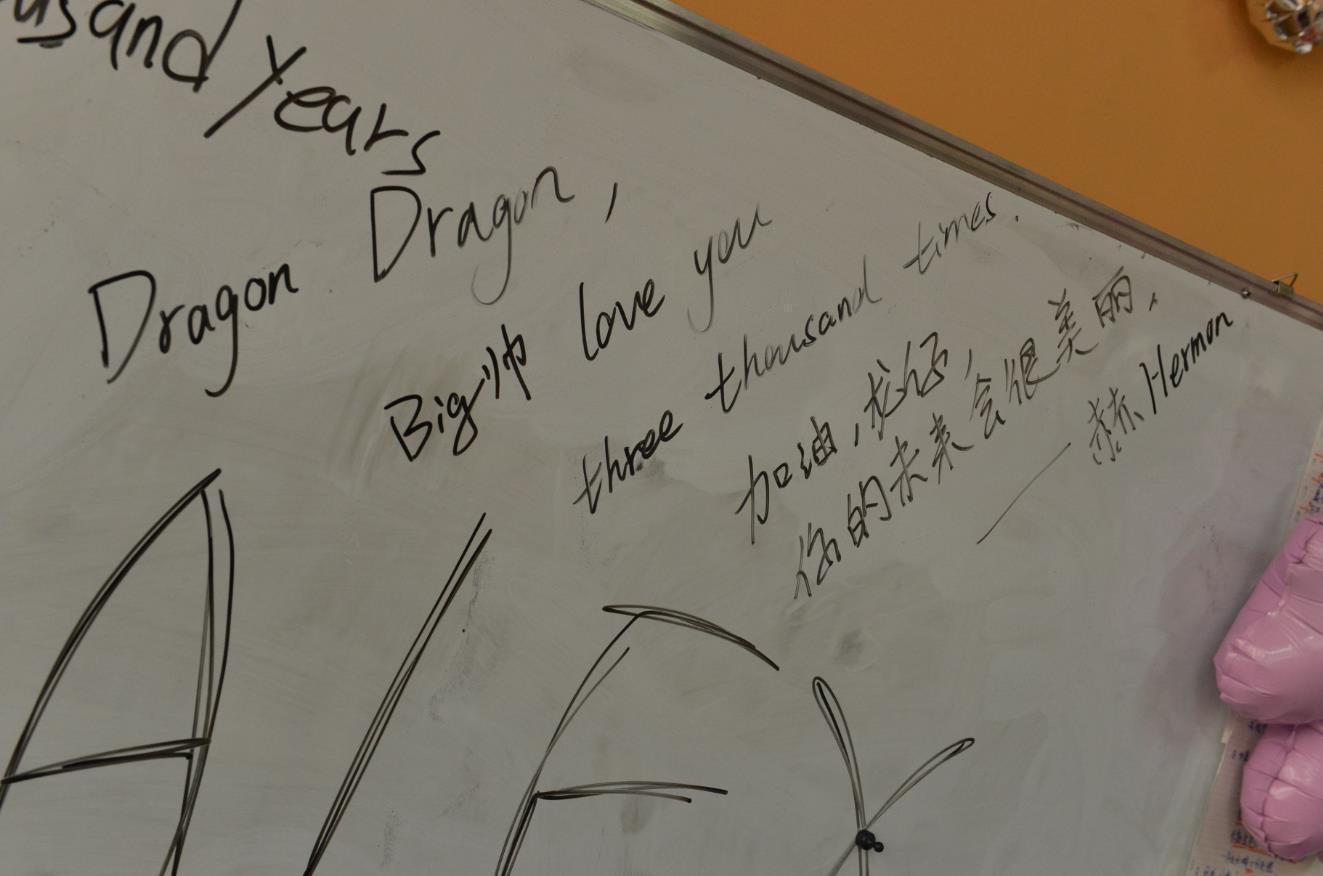 usand Years
Dragon Dragon,
Big帅 love you
three thousand times.
加油,龙哥,
你的未来会很美丽,
——赫Hermon
Alex